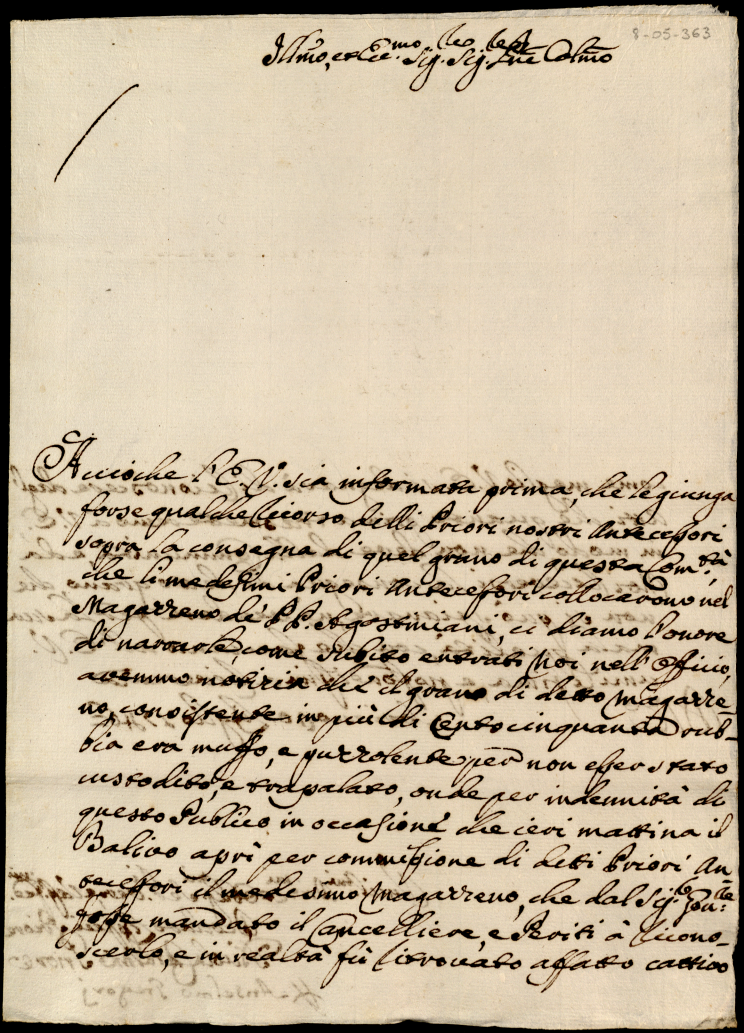 8-05-363
Ill.mo, et Ecc.mo Sig. Sig. P̃ne Colmo
Accioche l'E.V. sia informata prima, che le giunga
forse qualche ricorso delli Priori nostri Antecessori
sopra la consegna di quel grano di questa Com.tà
che li medesimi Priori Antecessori collocarono nel
Magazzeno de' PP. Agostiniani, ci diamo l'onore
di narrarle, come subito entrati Noi nell'Officio,
avemmo notizia che il grano di detto Magazze-
no, consistente in più di Centocinquanta rub-
bia era muffo, e puzzolente per non esser stato
custodito, e trapalato, onde per indennità di
questo Publico in occasione che ieri mattina il
Balivo aprì per commissione di detti Priori An
tecessori il medesimo Magazzeno, che dal Sig.
mandato il Cancelliere, e Periti à ricono-
scerlo, e in realtà fù ritrovato affatto cattivo